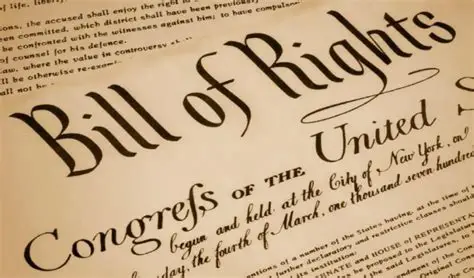 of life, liberty,
the accused shall enjoy the right to
been committed, which district shall have been previously
be confronted with the witnesses against him; to have compulsory
of counsel for his defence.
law, where the value in controversy
ll be otherwise re-exam
all not be
Bill of Rights
Congreſs OF THE United
begun and held at the City of New York, on
the fourth of March, one thousand seven hundred
of a number of the States having, at the time of
and restrictive clauses should
SENATE and HOUSE of REPRESENT
be proposed to the Legislatures